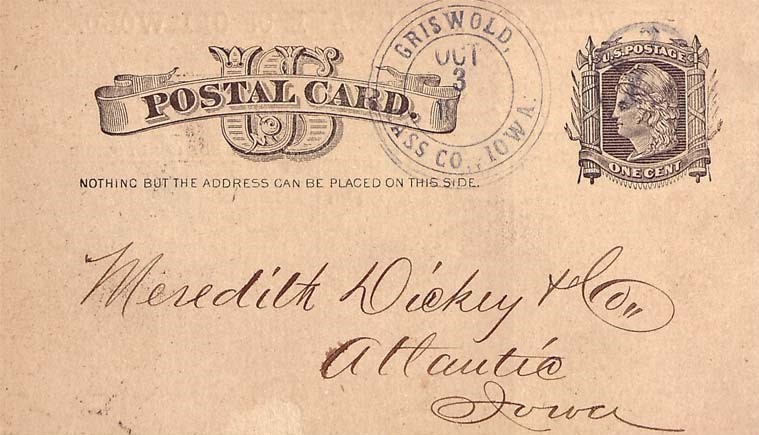 US
POSTAL CARD.
NOTHING BUT THE ADDRESS CAN BE PLACED ON THIS SIDE.
GRISWOLD,
OCT
3
CASS CO., IOWA.
U.S. POSTAGE
ONE CENT
Meredith Dickey & Co,,
Atlantic
Iowa